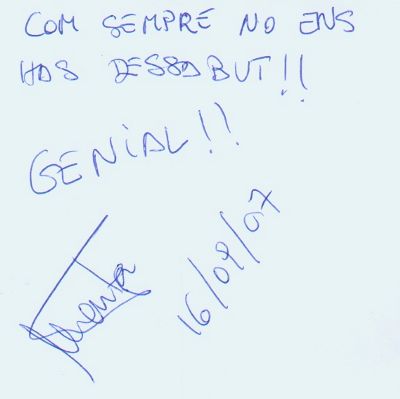 COM SEMPRE NO ENS
HAS DESSEBUT!!
GENIAL!!
16/09/07